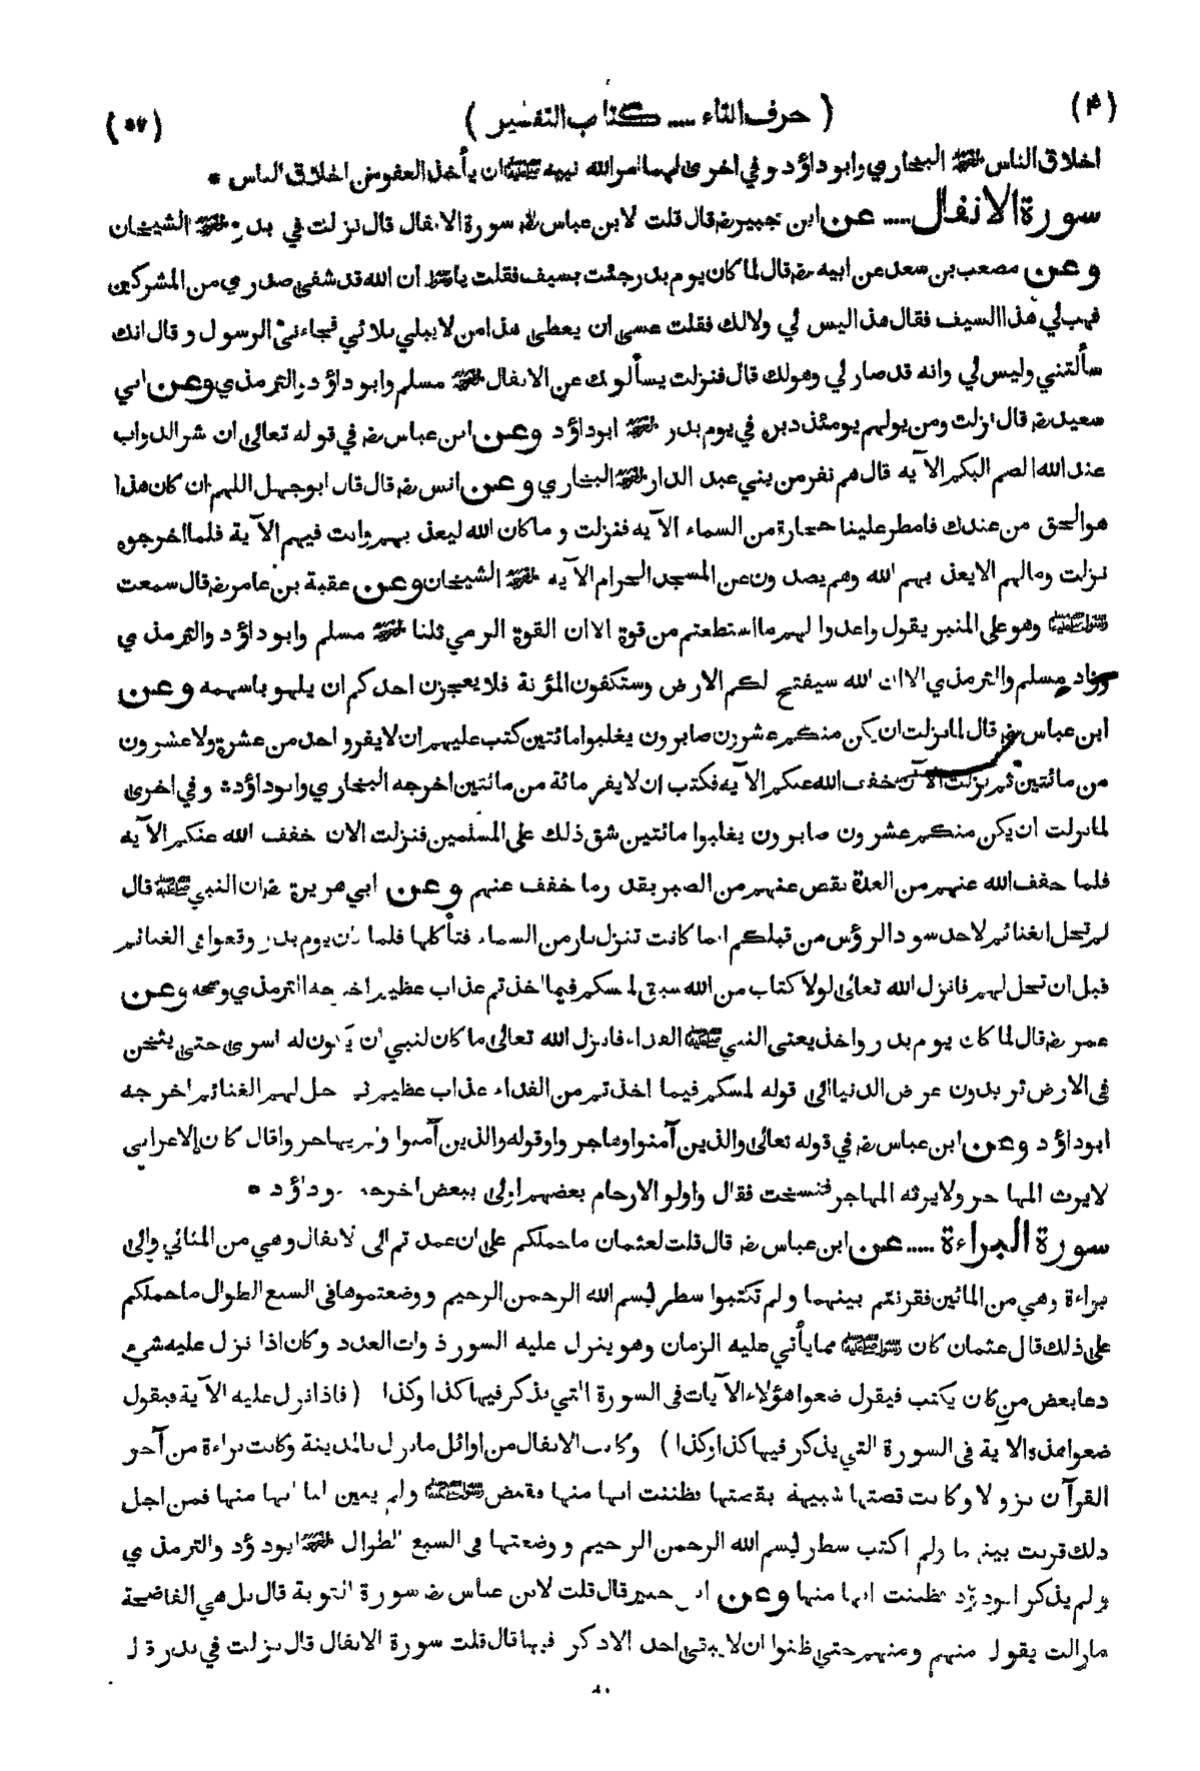 (۴) ( حرف التاء ــ كتاب التفسير ) (٥٧)
اخلاق الناس اخرجه البخاري وابو داؤد وفي اخرى لهما امر الله نبيه ﷺ ان يأخذ العفو من اخلاق الناس *
سورة الانفال ..... عن ابن جبير رض قال قلت لابن عباس رض سورة الانفال قال نزلت في بدر اخرجه الشيخان
وعن مصعب بن سعد عن ابيه رض قال لما كان يوم بدر جئت بسيف فقلت يا ان الله قد شفى صدري من المشركين
فهب لي هذا السيف فقال هذا ليس لي ولا لك فقلت عسى ان يعطى هذا من لا يبلي بلائي فجاءني الرسول وقال انك
سألتني وليس لي وانه قد صار لي وهو لك قال فنزلت يسألونك عن الانفال اخرجه مسلم وابو داؤد والترمذي وعن ابي
سعيد رض قال نزلت ومن يولهم يومئذ دبره في يوم بدر اخرجه ابو داؤد وعن ابن عباس رض في قوله تعالى ان شر الدواب
عند الله الصم البكم الآيه قال هم نفر من بني عبد الدار اخرجه البخاري وعن انس رض قال قال ابو جهل اللهم ان كان هذا
هو الحق من عندك فامطر علينا حجارة من السماء الآيه فنزلت وما كان الله ليعذبهم وانت فيهم الآية فلما اخرجوه
نزلت ومالهم الا يعذبهم الله وهم يصدون عن المسجد الحرام الآيه اخرجه الشيخان وعن عقبة بن عامر رض قال سمعت
رسول الله ﷺ وهو على المنبر يقول واعدوا لهم ما استطعتم من قوة الا ان القوة الرمي ثلثا اخرجه مسلم وابو داؤد والترمذي
وزاد مسلم والترمذي الا ان الله سيفتح لكم الارض وستكفون المؤنة فلا يعجزن احدكم ان يلهو باسهمه وعن
ابن عباس رض قال لما نزلت ان يكن منكم عشرون صابرون يغلبوا مائتين كتب عليهم ان لا يفر واحد من عشرة ولا عشرون
من مائتين ثم نزلت الآن خفف الله عنكم الآيه فكتب ان لا يفر مائة من مائتين اخرجه البخاري وابو داؤد وفي اخرى
لما نزلت ان يكن منكم عشرون صابرون يغلبوا مائتين شق ذلك على المسلمين فنزلت الان خفف الله عنكم الآيه
فلما خفف الله عنهم من العدة نقص عنهم من الصبر بقدر ما خفف عنهم وعن ابي هريرة رض ان النبي ﷺ قال
لم تحل الغنائم لاحد سود الرؤس من قبلكم انما كانت تنزل نار من السماء فتأكلها فلما كان يوم بدر وقعوا في الغنائم
قبل ان تحل لهم فانزل الله تعالى لولا كتاب من الله سبق لمسكم فيما اخذتم عذاب عظيم اخرجه الترمذي وصححه وعن
عمر رض قال لما كان يوم بدر واخذ يعني النبي ﷺ الفداء فانزل الله تعالى ما كان لنبي ان يكون له اسرى حتى يثخن
في الارض تريدون عرض الدنيا الى قوله لمسكم فيما اخذتم من الفداء عذاب عظيم ثم حل لهم الغنائم اخرجه
ابو داؤد وعن ابن عباس رض في قوله تعالى والذين آمنوا وهاجروا وقوله والذين آمنوا ولم يهاجروا قال كان الاعرابي
لا يرث المهاجر ولا يرثه المهاجر فنسخت فقال واولو الارحام بعضهم اولى ببعض اخرجه ابو داؤد *
سورة البراءة ..... عن ابن عباس رض قال قلت لعثمان ما حملكم على ان عمدتم الى الانفال وهي من المثاني والى
براءة وهي من المائين فقرنتم بينهما ولم تكتبوا سطر بسم الله الرحمن الرحيم ووضعتموها في السبع الطوال ما حملكم
على ذلك قال عثمان كان رسول الله ﷺ مما يأتي عليه الزمان وهو ينزل عليه السور ذوات العدد وكان اذا نزل عليه شيء
دعا بعض من كان يكتب فيقول ضعوا هؤلاء الآيات في السورة التي يذكر فيها كذا وكذا ( فاذا نزل عليه الآية فيقول
ضعوا هذه الآية في السورة التي يذكر فيها كذا وكذا ) وكانت الانفال من اوائل ما نزل بالمدينة وكانت براءة من آخر
القرآن نزولا وكانت قصتها شبيهة بقصتها فظننت انها منها فقبض رسول الله ﷺ ولم يبين لنا انها منها فمن اجل
ذلك قرنت بينهما ولم اكتب سطر بسم الله الرحمن الرحيم ووضعتها في السبع الطوال اخرجه ابو داؤد والترمذي
ولم يذكر ابو داؤد فظننت انها منها وعن ابن جبير قال قلت لابن عباس رض سورة التوبة قال بل هي الفاضحة
ما زالت يقول منهم ومنهم حتى ظنوا ان لا يبقى احد الا ذكر فيها قال قلت سورة الانفال قال نزلت في بدر